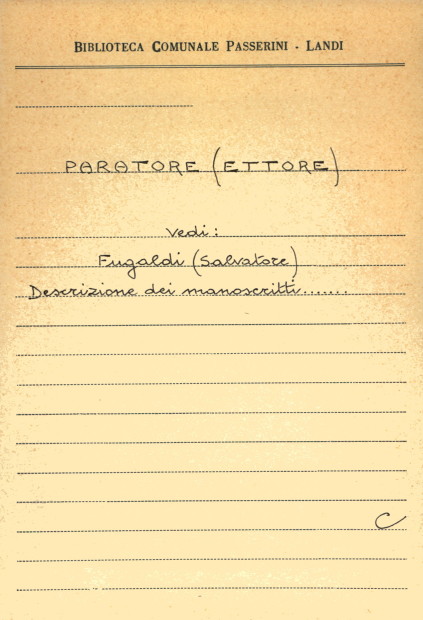 BIBLIOTECA COMUNALE PASSERINI - LANDI
PARATORE (ETTORE)
Vedi:
Fugaldi (Salvatore)
Descrizione dei manoscritti.......
C